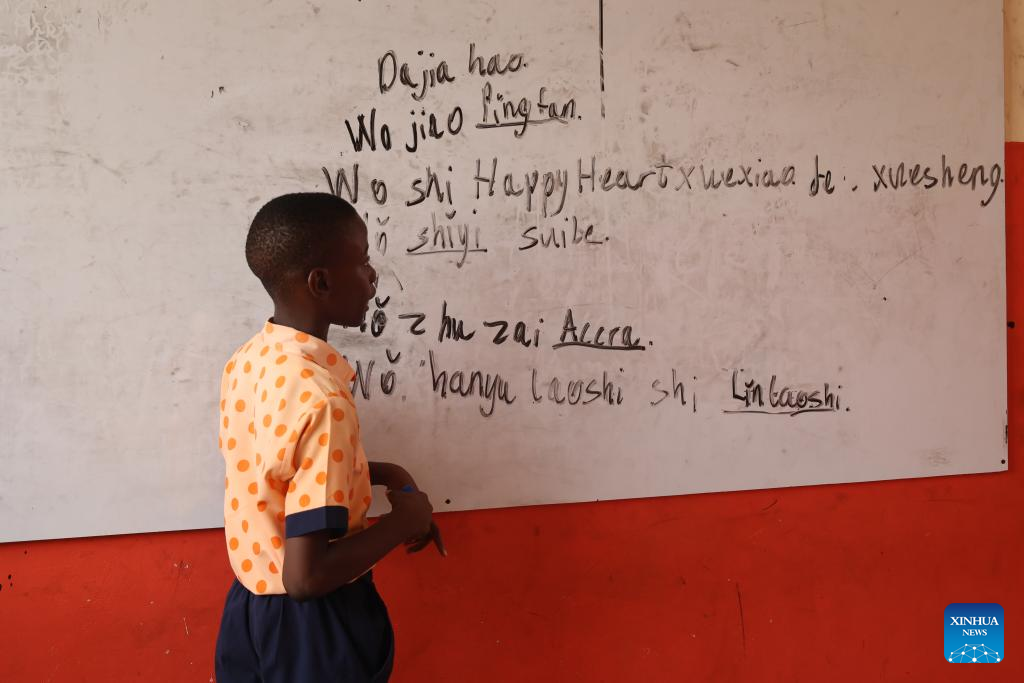 Dajia hao.
Wo jiao Pingfan.
Wo shi Happy Heart xuexiao de xuesheng.
shiyi suile.
zhu zai Accra.
Wǒ hanyu laoshi shi Lin laoshi.
XINHUA
NEWS